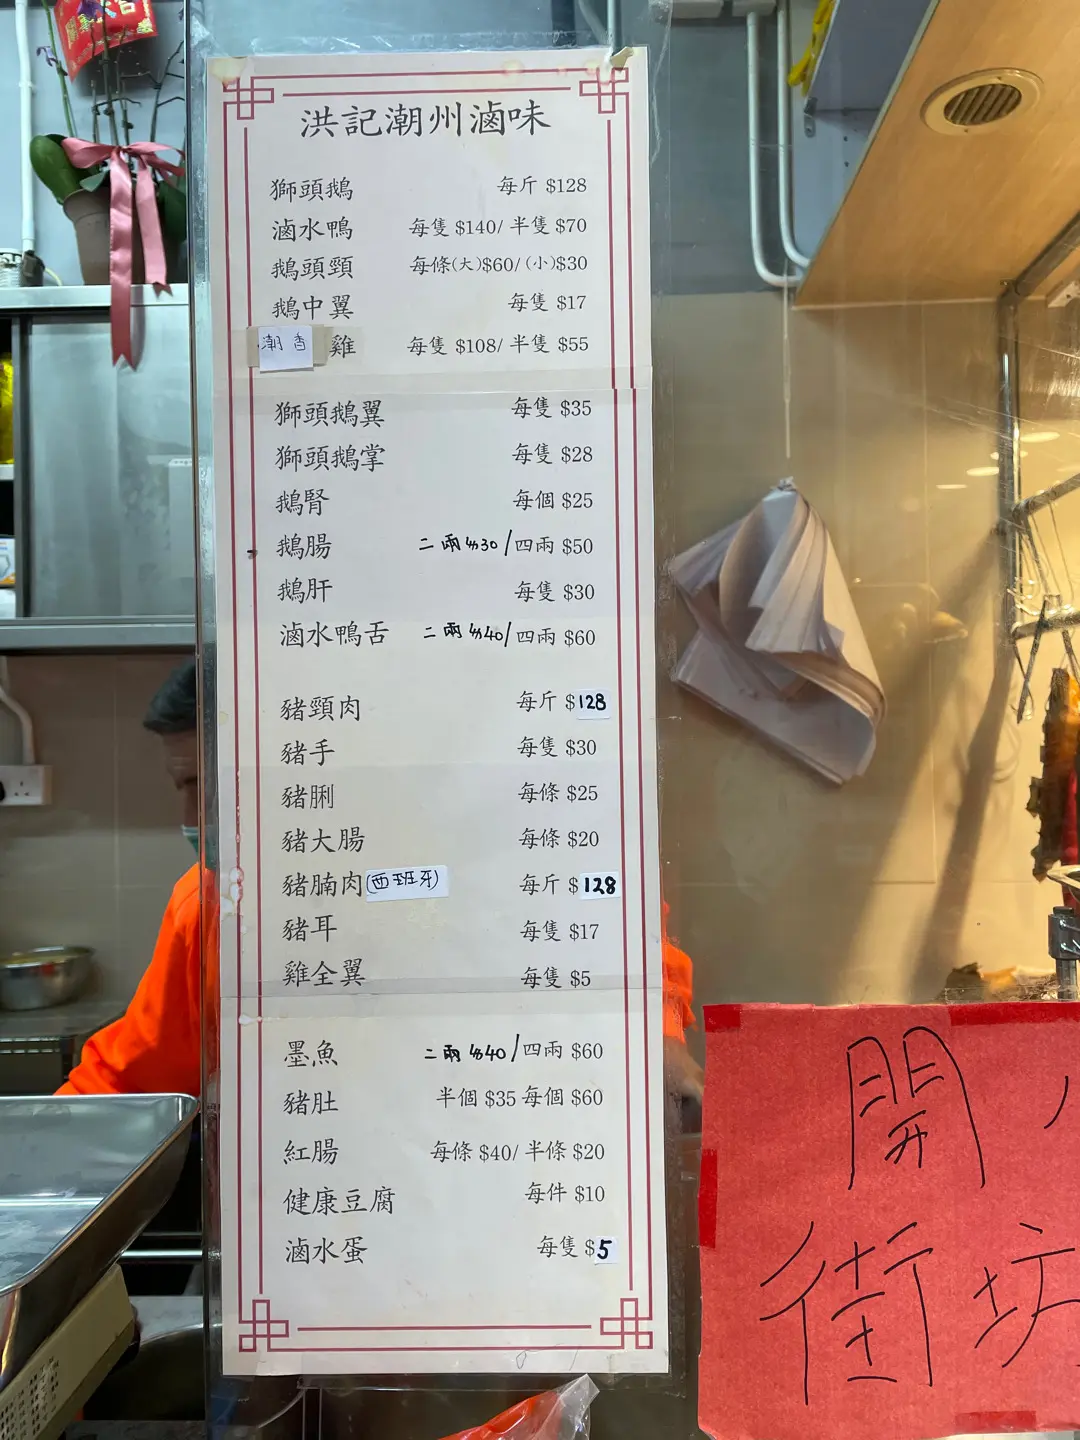 洪記潮州滷味
獅頭鵝 每斤 $128
滷水鴨 每隻 $140/ 半隻 $70
鵝頭頸 每條(大)$60/(小)$30
鵝中翼 每隻 $17
潮香雞 每隻 $108/ 半隻 $55
獅頭鵝翼 每隻 $35
獅頭鵝掌 每隻 $28
鵝腎 每個 $25
鵝腸 二兩$30/四兩 $50
鵝肝 每隻 $30
滷水鴨舌 二兩$40/四兩 $60
豬頸肉 每斤 $128
豬手 每隻 $30
豬脷 每條 $25
豬大腸 每條 $20
豬腩肉(西班牙) 每斤 $128
豬耳 每隻 $17
雞全翼 每隻 $5
墨魚 二兩$40/四兩 $60
豬肚 半個 $35 每個 $60
紅腸 每條 $40/ 半條 $20
健康豆腐 每件 $10
滷水蛋 每隻 $5
開
街坊